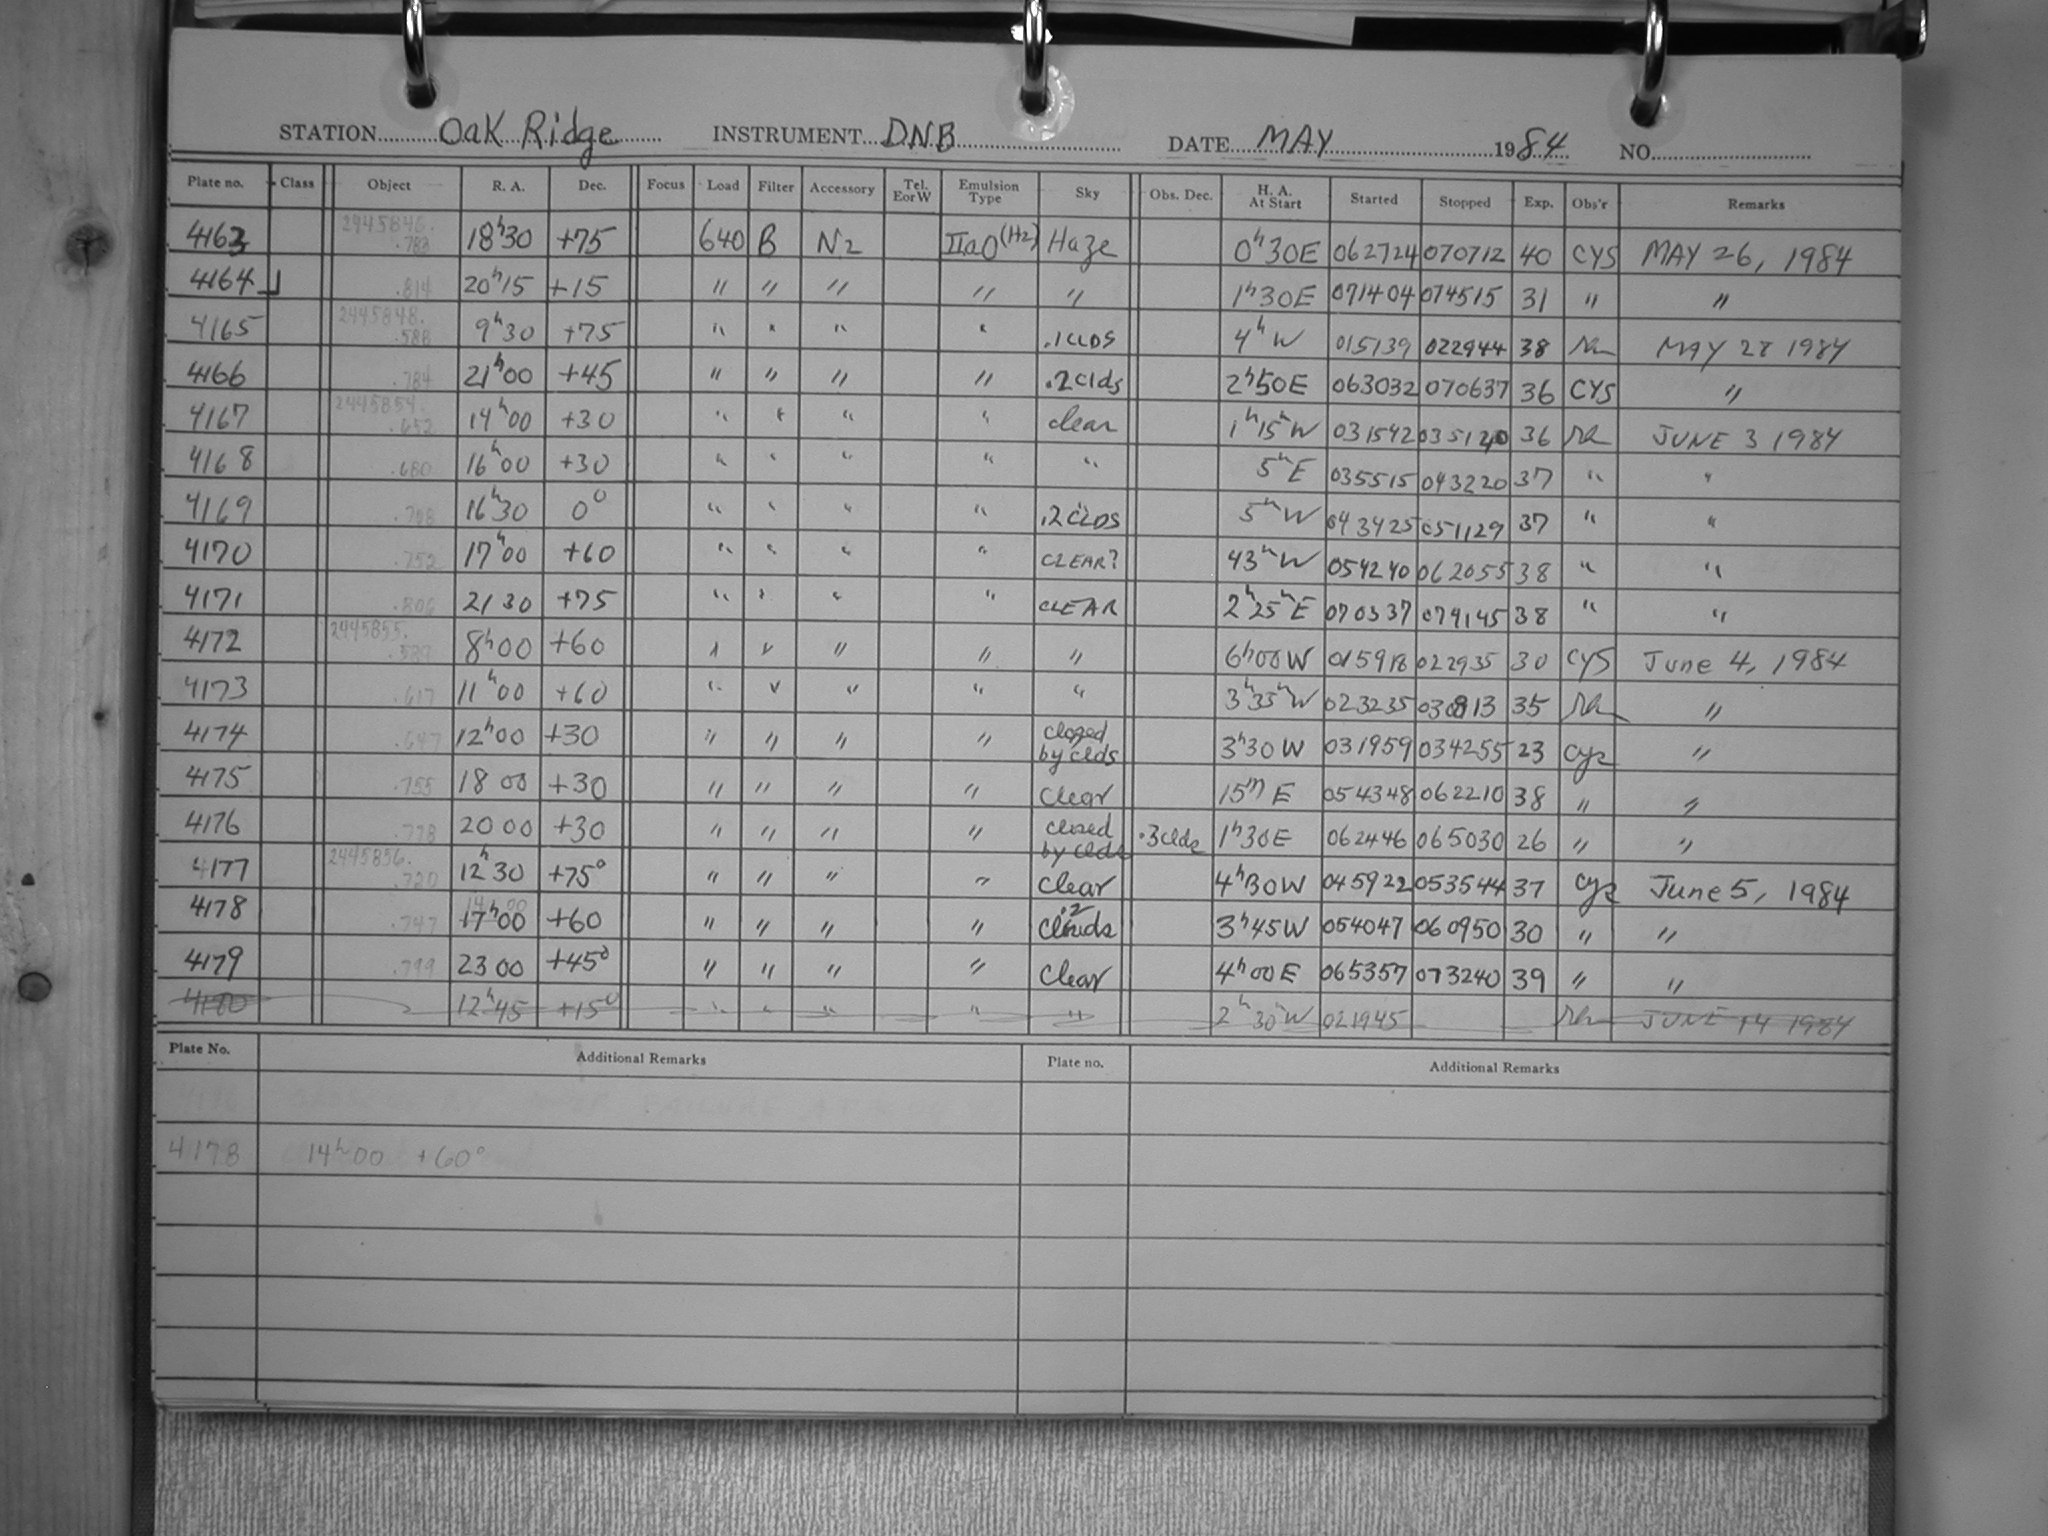 STATION Oak Ridge INSTRUMENT DNB DATE MAY 1984 NO.
Plate no. Class Object R. A. Dec. Focus Load Filter Accessory Tel. E or W Emulsion Type Sky Obs. Dec. H. A. At Start Started Stopped Exp. Obs'r Remarks
4163 2445846. .783 18h30 +75 640 B N2 IIaO(H2) Haze 0h30E 062724 070712 40 CYS MAY 26, 1984
4164 .814 20h15 +15 " " " " " 1h30E 071404 074515 31 " "
4165 2445848. .588 9h30 +75 " " " " .1CLDS 4h W 015139 022944 38 MAY 28 1984
4166 .784 21h00 +45 " " " " .2Clds 2h50E 063032 070637 36 CYS "
4167 2445854. .652 14h00 +30 " " " " clear 1h15mW 031542 035120 36 JUNE 3 1984
4168 .680 16h00 +30 " " " " " 5mE 035515 043220 37 " "
4169 .708 16h30 0° " " " " .2CLDS 5mW 043425 051129 37 " "
4170 .752 17h00 +60 " " " " CLEAR? 43mW 054240 062055 38 " "
4171 .806 21 30 +75 " " " " CLEAR 2h25mE 070337 074145 38 " "
4172 2445855. .589 8h00 +60 " " " " " 6h00W 015918 022935 30 CYS June 4, 1984
4173 .617 11h00 +60 " " " " " 3h35mW 023235 030813 35 "
4174 .647 12h00 +30 " " " " closed by clds 3h30W 031959 034255 23 Cys "
4175 .755 18 00 +30 " " " " Clear 15m E 054348 062210 38 " "
4176 .778 20 00 +30 " " " " closed by clds .3Clds 1h30E 062446 065030 26 " "
4177 2445856. .720 12h30 +75° " " " " Clear 4h30W 045922 053544 37 Cys June 5, 1984
4178 .747 14h00 17h00 +60 " " " " .2 Clouds 3h45W 054047 060950 30 " "
4179 .799 23 00 +45° " " " " Clear 4h00E 065357 073240 39 " "
4180 12h45 +15° " " " " " 2h30mW 021945 JUNE 14 1984
Plate No. Additional Remarks Plate no. Additional Remarks
4178 14h00 +60°